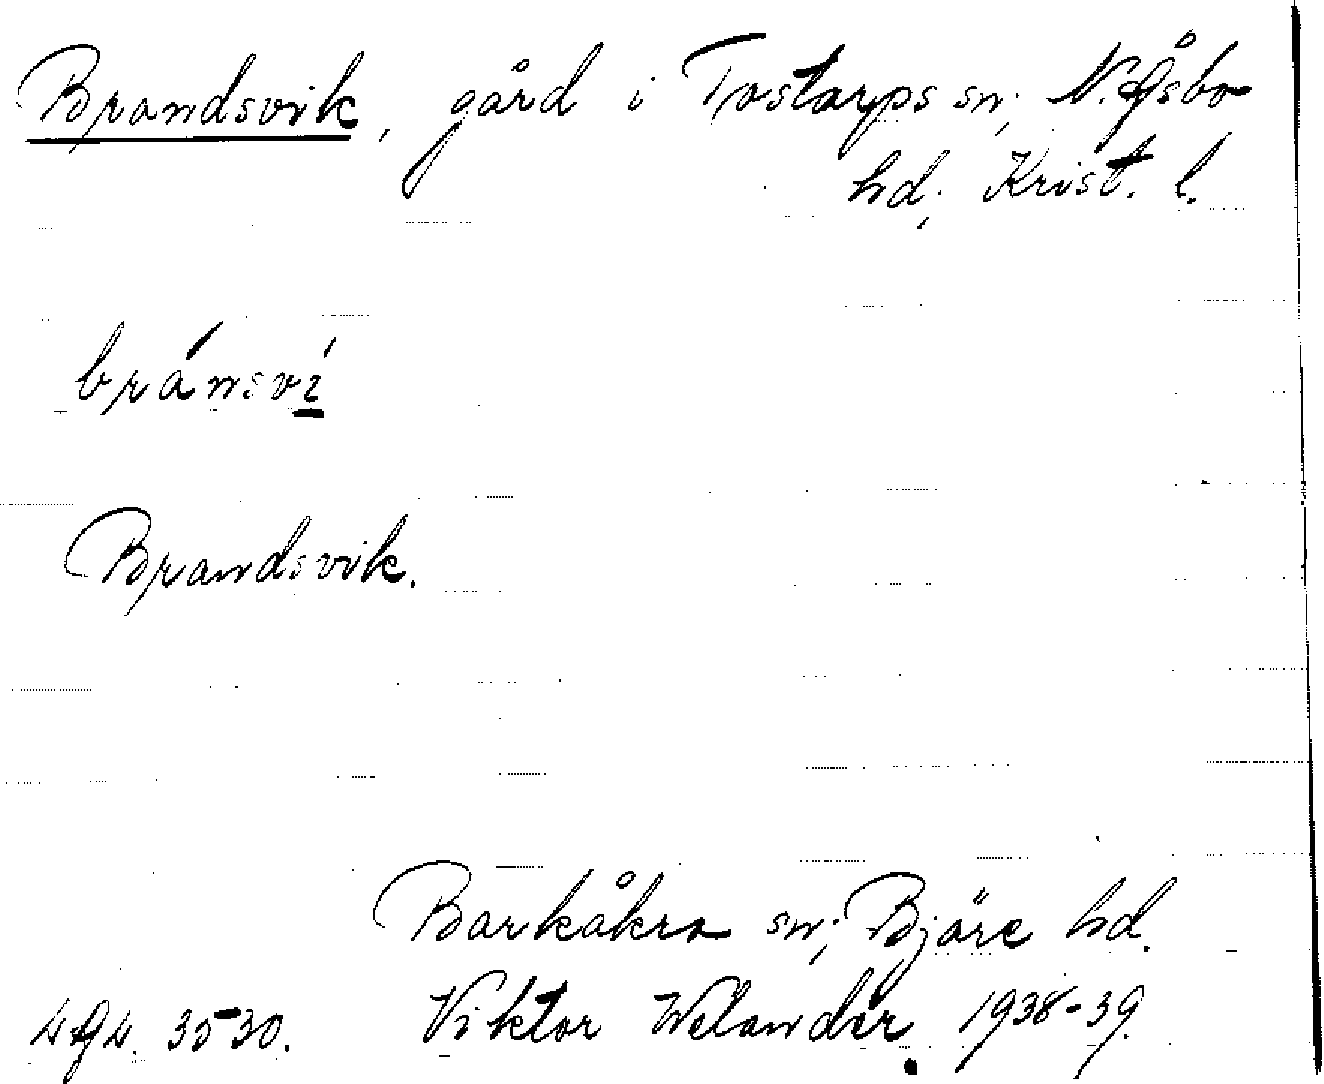 Brandsvik, gård i Tostarps sn; N. Åsbo
hd; Krist. l.
bránsví
Brandsvik.
Barkåkra sn; Bjäre hd.
LAL. 3530. Viktor Welander. 1938-39.